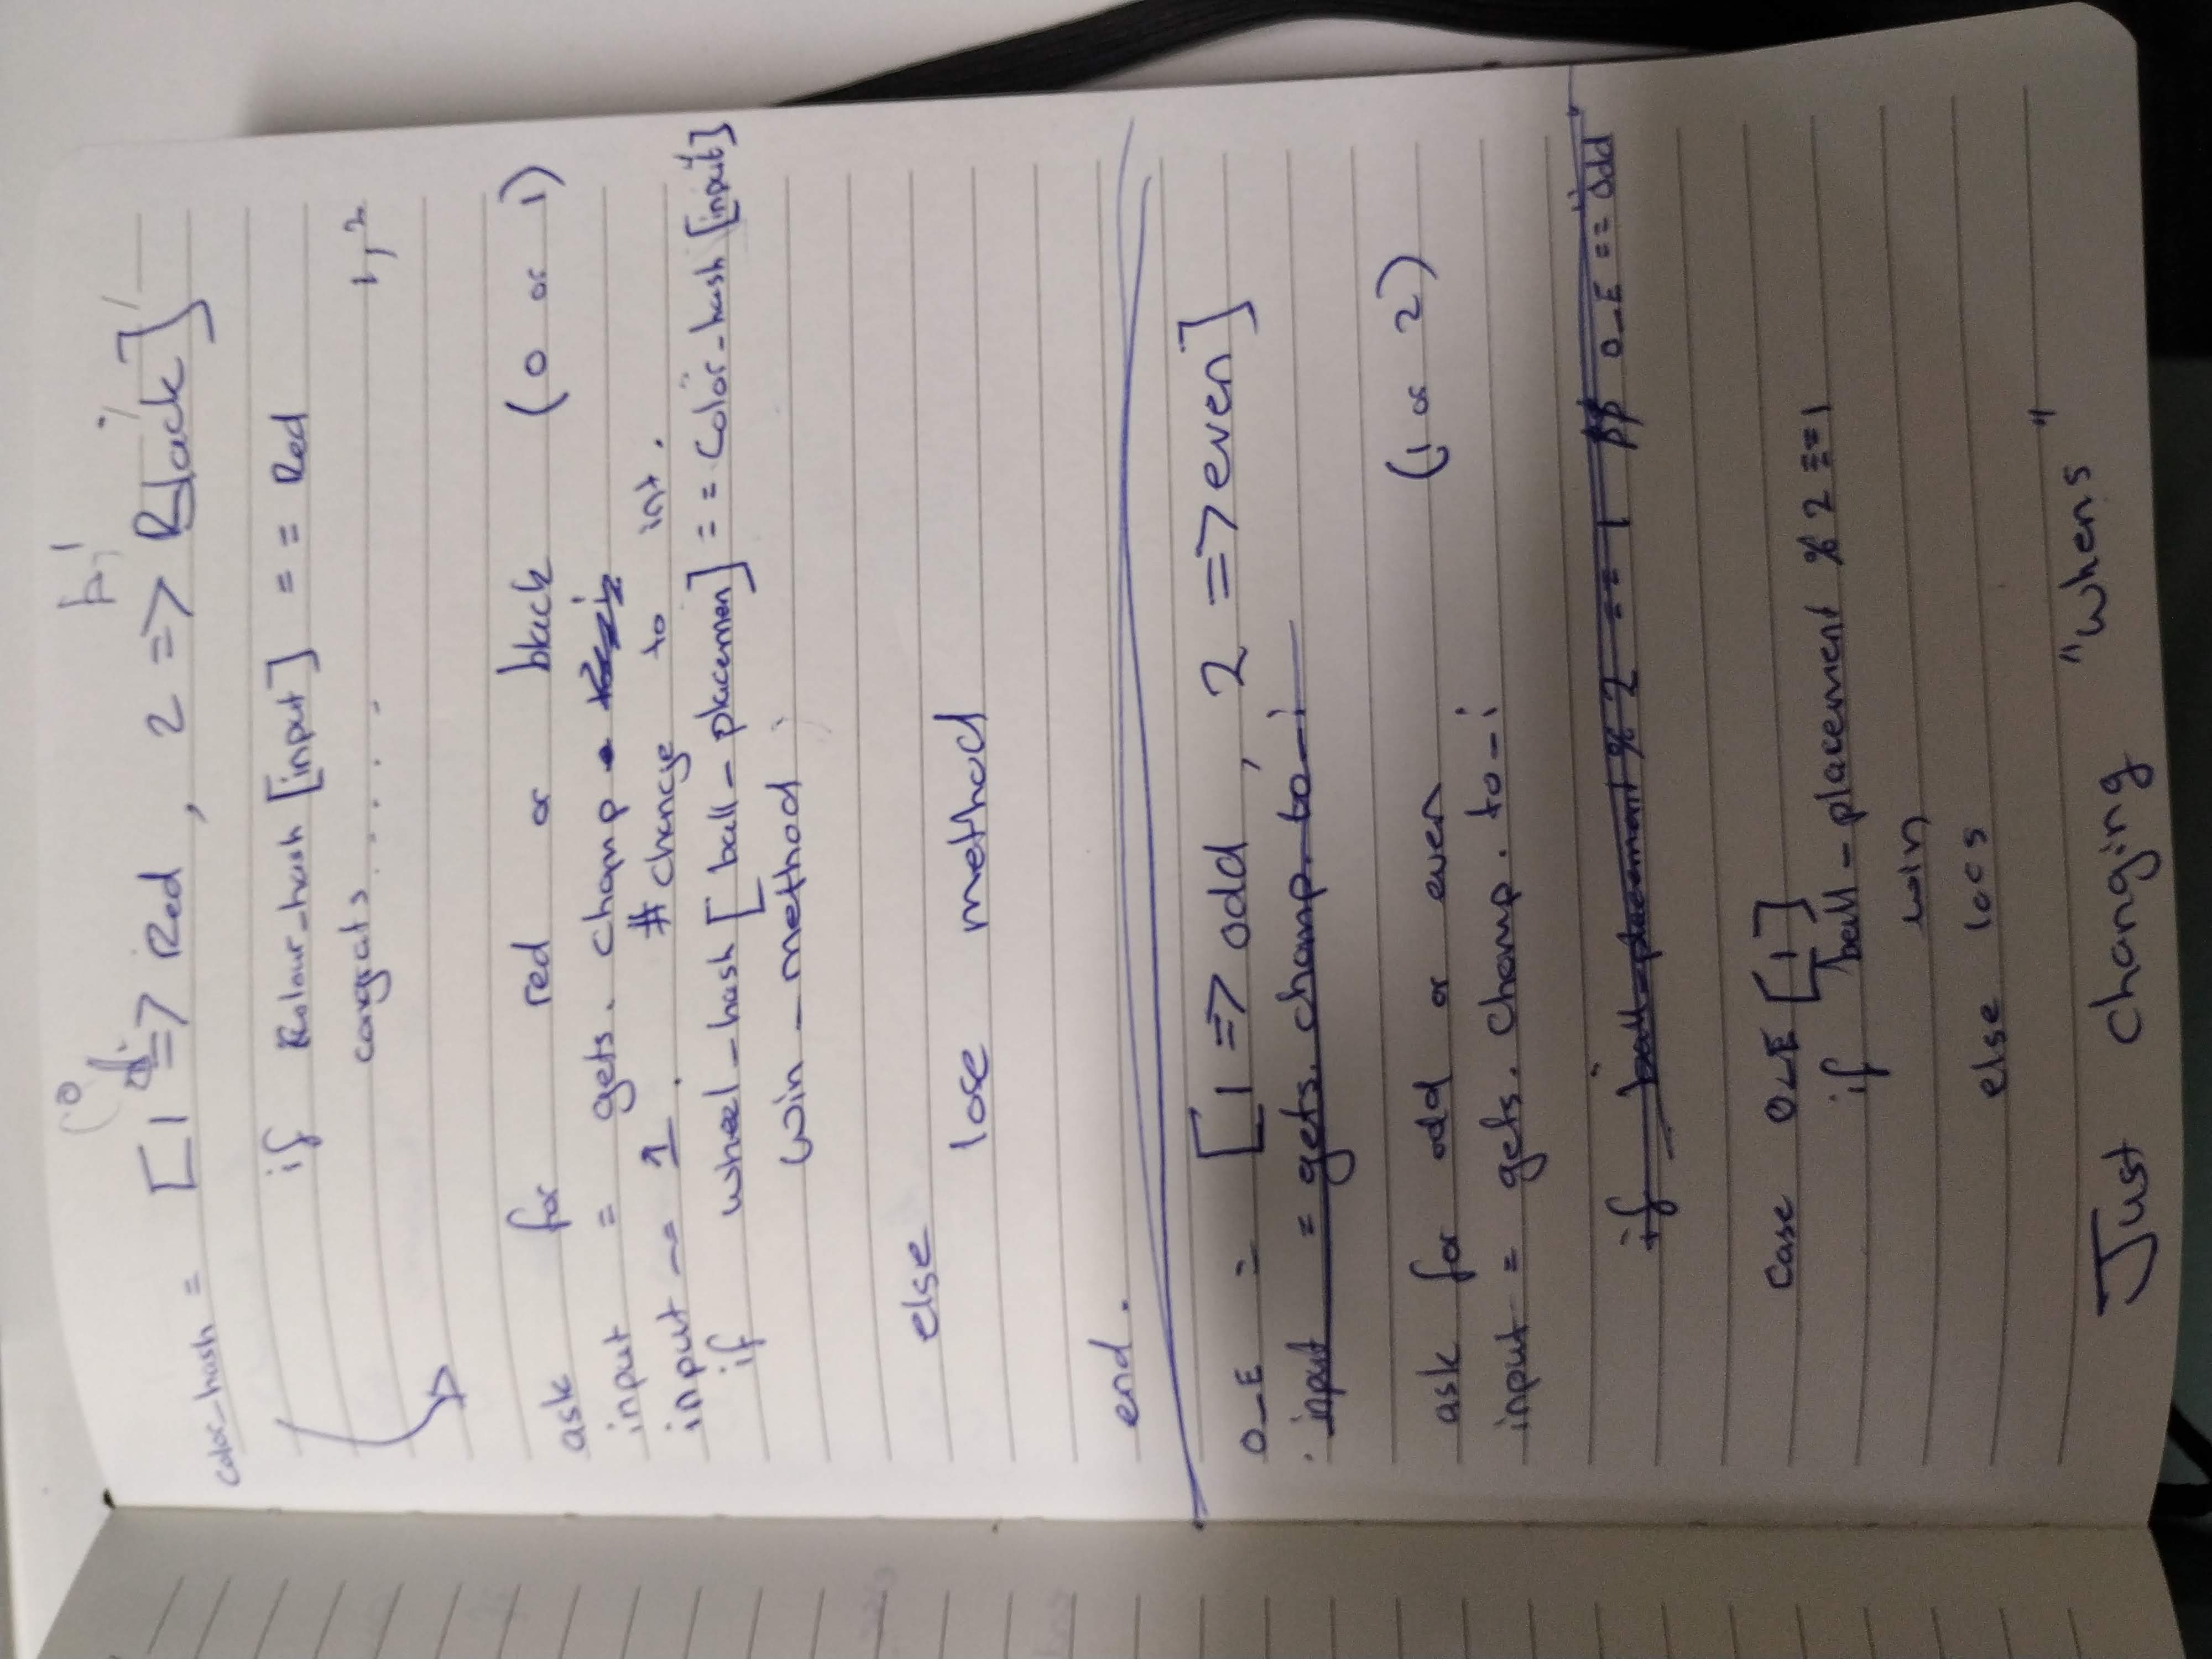 color_hash = [1 => Red , 2 => Black]
if Colour_hash [input] == Red
congrats .....
1, 2
ask for red or black (0 or 1)
input = gets. chomp
input -= 1. # change to int.
if wheel_hash [ball_placemen] == Color_hash [input]
win _ method
else
lose method
end.
O_E = [1 => odd , 2 => even]
input = gets. chomp. to_i
ask for odd or even (1 or 2)
input = gets. chomp. to_i
if ball_placement % 2 == 1 && O_E == "Odd"
Case O_E [1]
if ball_placement % 2 == 1
win
else loes
Just changing "whens"